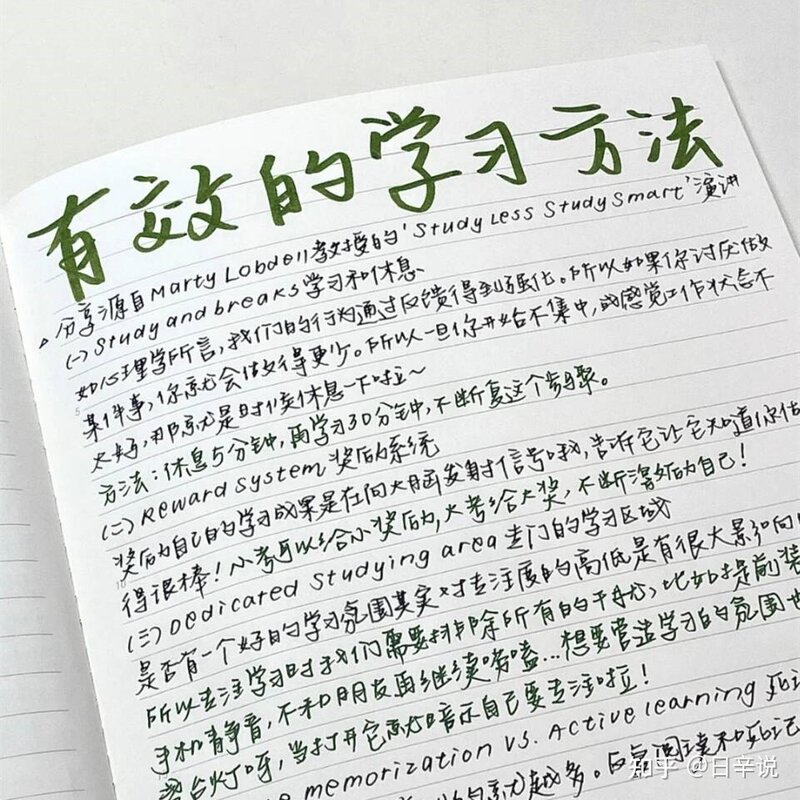 有效的学习方法
分享源自Marty Lobdell教授的'Study Less Study Smart'演讲
(一) Study and breaks 学习和休息
如心理学所言,我们的行为通过反馈得到强化。所以如果你讨厌做
某件事,你就会做得更少。所以一旦你开始不集中,或感觉工作状态不
太好,那就是时候休息一下啦~
方法:休息5分钟,再学习30分钟,不断重复这个步骤。
(二) Reward system 奖励系统
奖励自己的学习成果是在向大脑发射信号哦,告诉它让它知道你做
得很棒!小考可以给小奖励,大考给大奖,不断激励自己!
(三) Dedicated studying area 专门的学习区域
是否有一个好的学习氛围其实对专注度的高低是有很大影响
所以专注学习时我们需要排除所有的干扰,比如提前
手机静音,不和朋友再继续唠嗑...想要营造学习的氛围也
台灯呀,当打开它就暗示自己要专注啦!
memorization vs. Active learning 死记
就越多。反复阅读和死记
知乎 @日辛说